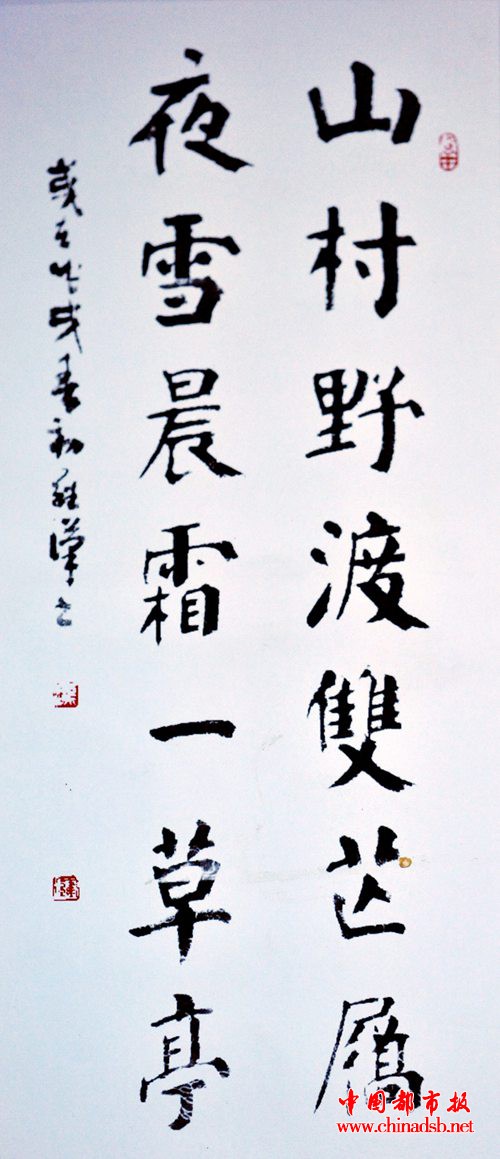 山村野渡雙芒屩
夜雪晨霜一草亭
春初
中国都市报
www.chinadsb.net